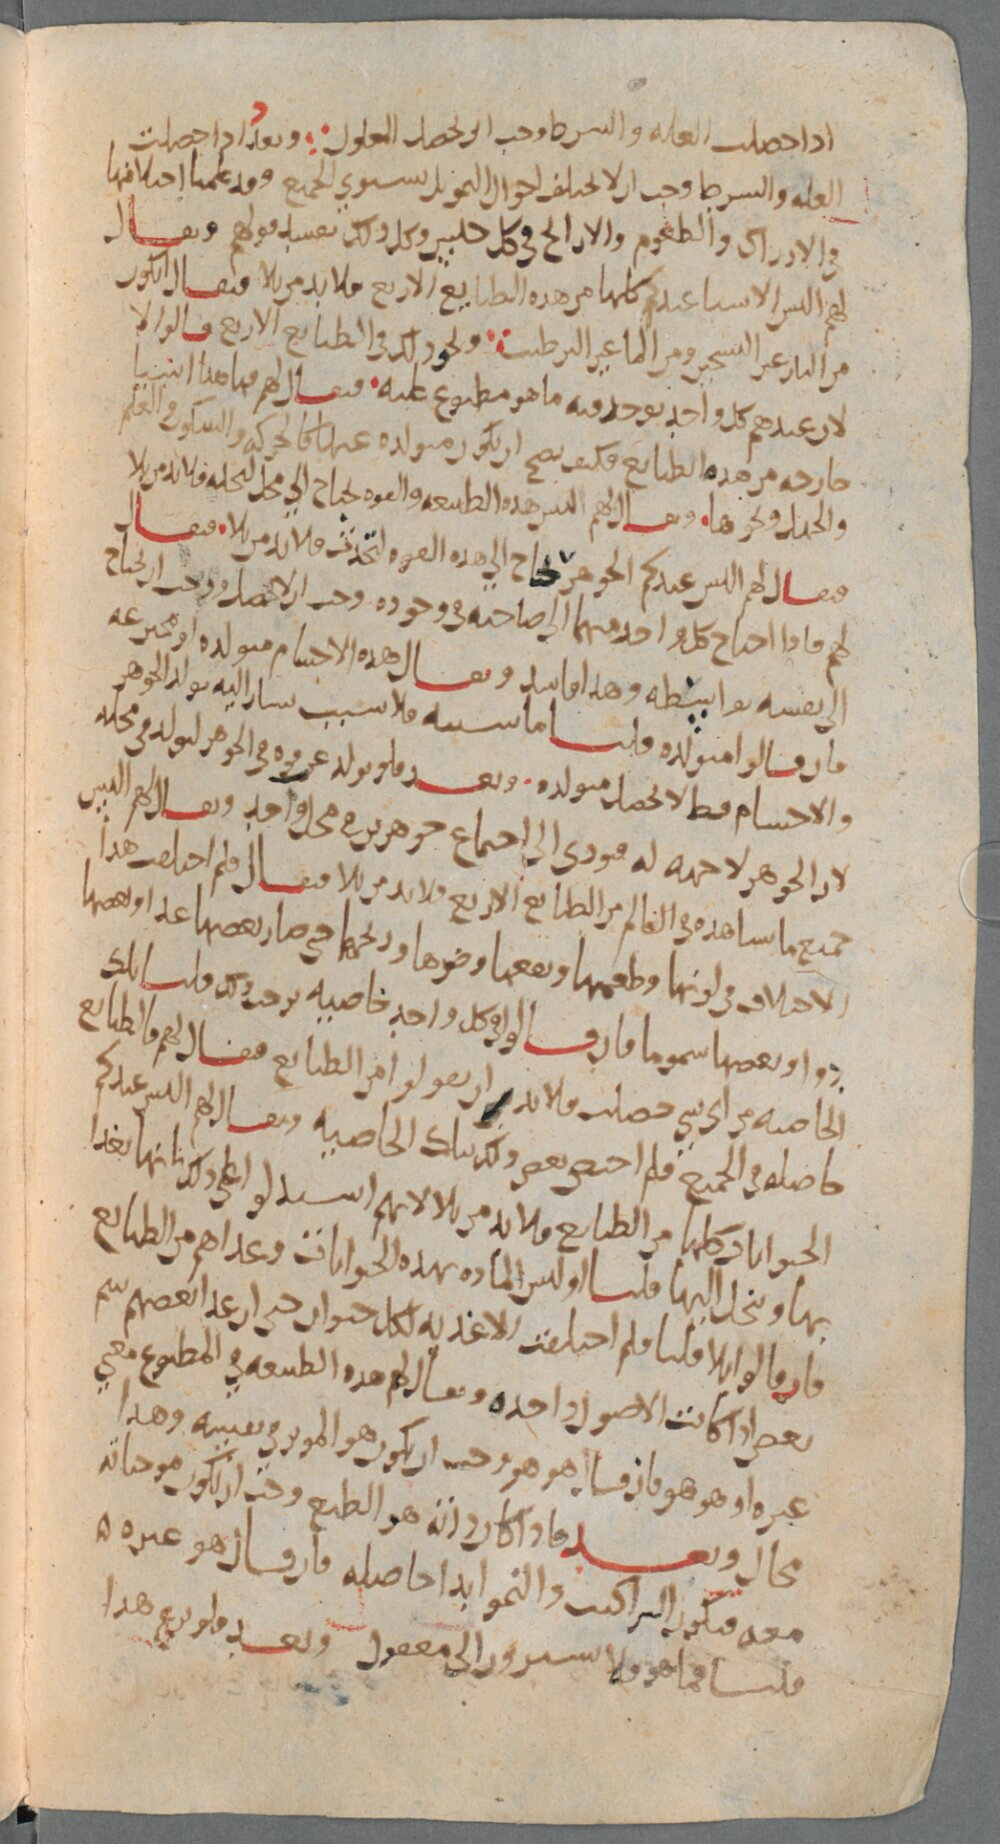 اذا حصلت العله والشرط وجب ان يحصل المعلول وبعد اذا حصلت
العله والشرط وجب ان لا يختلف احوال النمو بل يستوي الجميع وقد علمنا اختلافها
في الادراك والطعوم والاراييح في كل حلبير وكل ذلك يفسد قولهم ويقال
لهم اليس الاشيا عندكم كلها من هذه الطبايع الاربع فلا بد من بلا فيقال ايكون
من النار غير التسخين ومن الما غير الترطيب ونحو ذلك في الطبايع الاربع قالوا لا
لان عندهم كل واحد يوجد منه ما هو مطبوع عليه فيقال لهم فها هنا اشيا
خارجه من هذه الطبايع فكيف يصح ان يكون متولده عنها كالحركه والسكون والعلم
والجهل ونحوها ويقال لهم اليس هذه الطبيعه والقوه يحتاج الى محل لتحله فلا بد من بلا
فيقال لهم اليس عندكم الجوهر يحتاج الى هذه القوه لتحدث فلا بد من بلا فيقال
لهم فاذا احتاج كل واحد منهما الى صاحبه في وجوده وجب ان لا يحصل ووجب ان يحتاج
الى نفسه بواسطه وهذا فاسد ويقال هذه الاجسام متولده او مخترعه
فان قالوا متولده قلنا ما سببه فلا سبب يشار اليه يولد الجوهر
والاجسام قط لا تحصل متولده وبعد فلو تولد عن قوه في الجوهر لتولد في محله
لان الجوهر لا جهه له فيودي الى اجتماع جوهرين في محل واحد ويقال لهم اليس
جميع ما نشاهده في العالم من الطبايع الاربع فلا بد من بلا فيقال فلم اختلفت هذا
الاختلاف في لونها وطعمها ونفعها وضرها وريحها حتى صار بعضها غذا وبعضها
دوا وبعضها سموما فان قالوا في كل واحد خاصيه توجب ذلك قلنا تلك
الخاصيه من اي شي حصلت فلا بد ان يقولوا من الطبايع فيقال لهم فالطبايع
حاصله في الجميع فلم اختص بعض ذلك بتلك الخاصيه ويقال لهم اليس عندكم
الحيوانات كلها من الطبايع فلا بد من بلا لانهم استدلوا على ذلك بانها تغذا
بها وينحل اليها قلنا اوليس الماده بهذه الحيوانات وغذاهم من الطبايع
فان قالوا بلا قلنا فلم اختلفت الاغذيه لكل حيوان حتى ان غذا بعضهم سم
بعض اذا كانت الاصول واحده ويقال لهم هذه الطبيعه في المطبوع معنى
غيره او هو هو فان قال هو هو وجب ان يكون هو الموثر في نفسه وهذا
محال وبعد فاذا كان ذاته هو الطبع وجب ان يكون موجباته
معه فيكون التراكيب والنمو ابدا حاصله فان قال هو غيره ه
قلنا فما هو فلا يشيرون الى معقول وبعد فلو تربع هذا